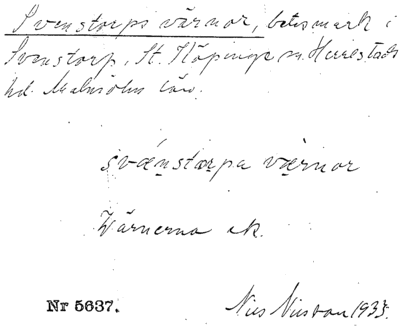 Svenstorps värnor, betesmark i
Svenstorp, St. Köpinge sn. Herrestads
hd. Malmöhus län.
sväanstarpa värnor
Wärnerna ek.
Nr 5637.
Nils Nilsson 1933.